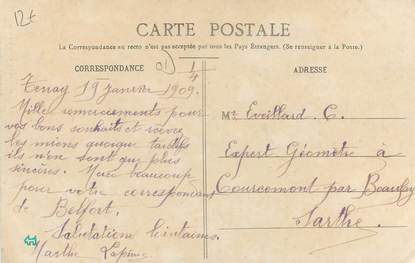 12€
CARTE POSTALE
La Correspondance au recto n'est pas acceptée par tous les Pays Étrangers. (Se renseigner à la Poste.)
CORRESPONDANCE
01
1/4
ADRESSE
Tenay 19 Janvier 1909.
Mille remerciements pour
vos bons souhaits et recevez
les miens quoique tardifs
ils n'en sont que plus
sincères. Merci beaucoup
pour votre correspondant
de Belfort.
Salutations lointaines.
Marthe
Mr Eveillard C.
Expert Géomètre à
Courcemont par Beaufay
Sarthe.